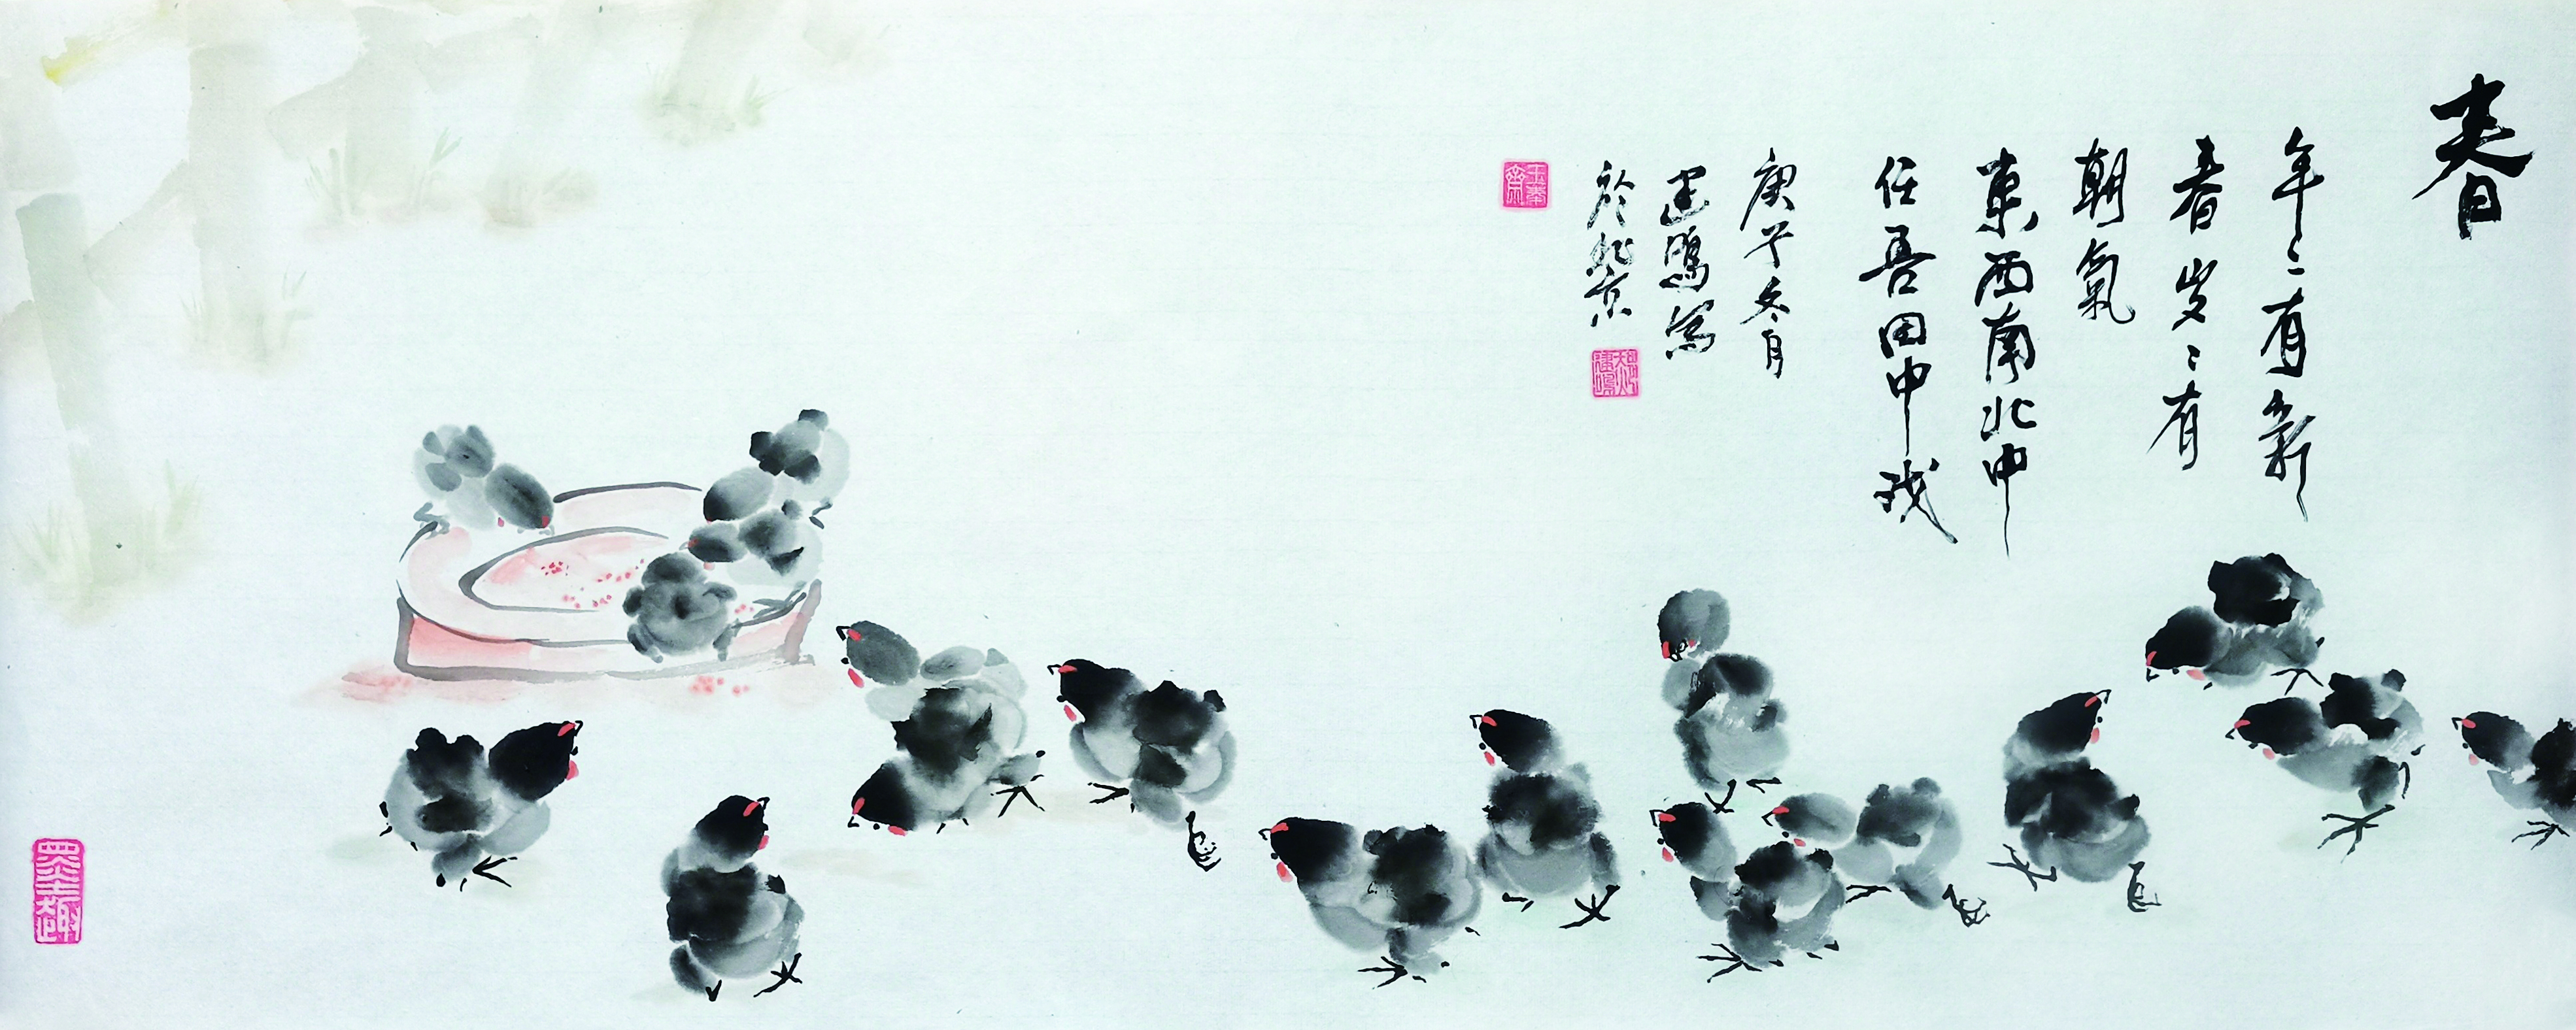 春
年〻有新
春岁〻有
朝氣
東西南北中
任吾田中戏
庚子冬月
建鳴写
於北京
墨趣